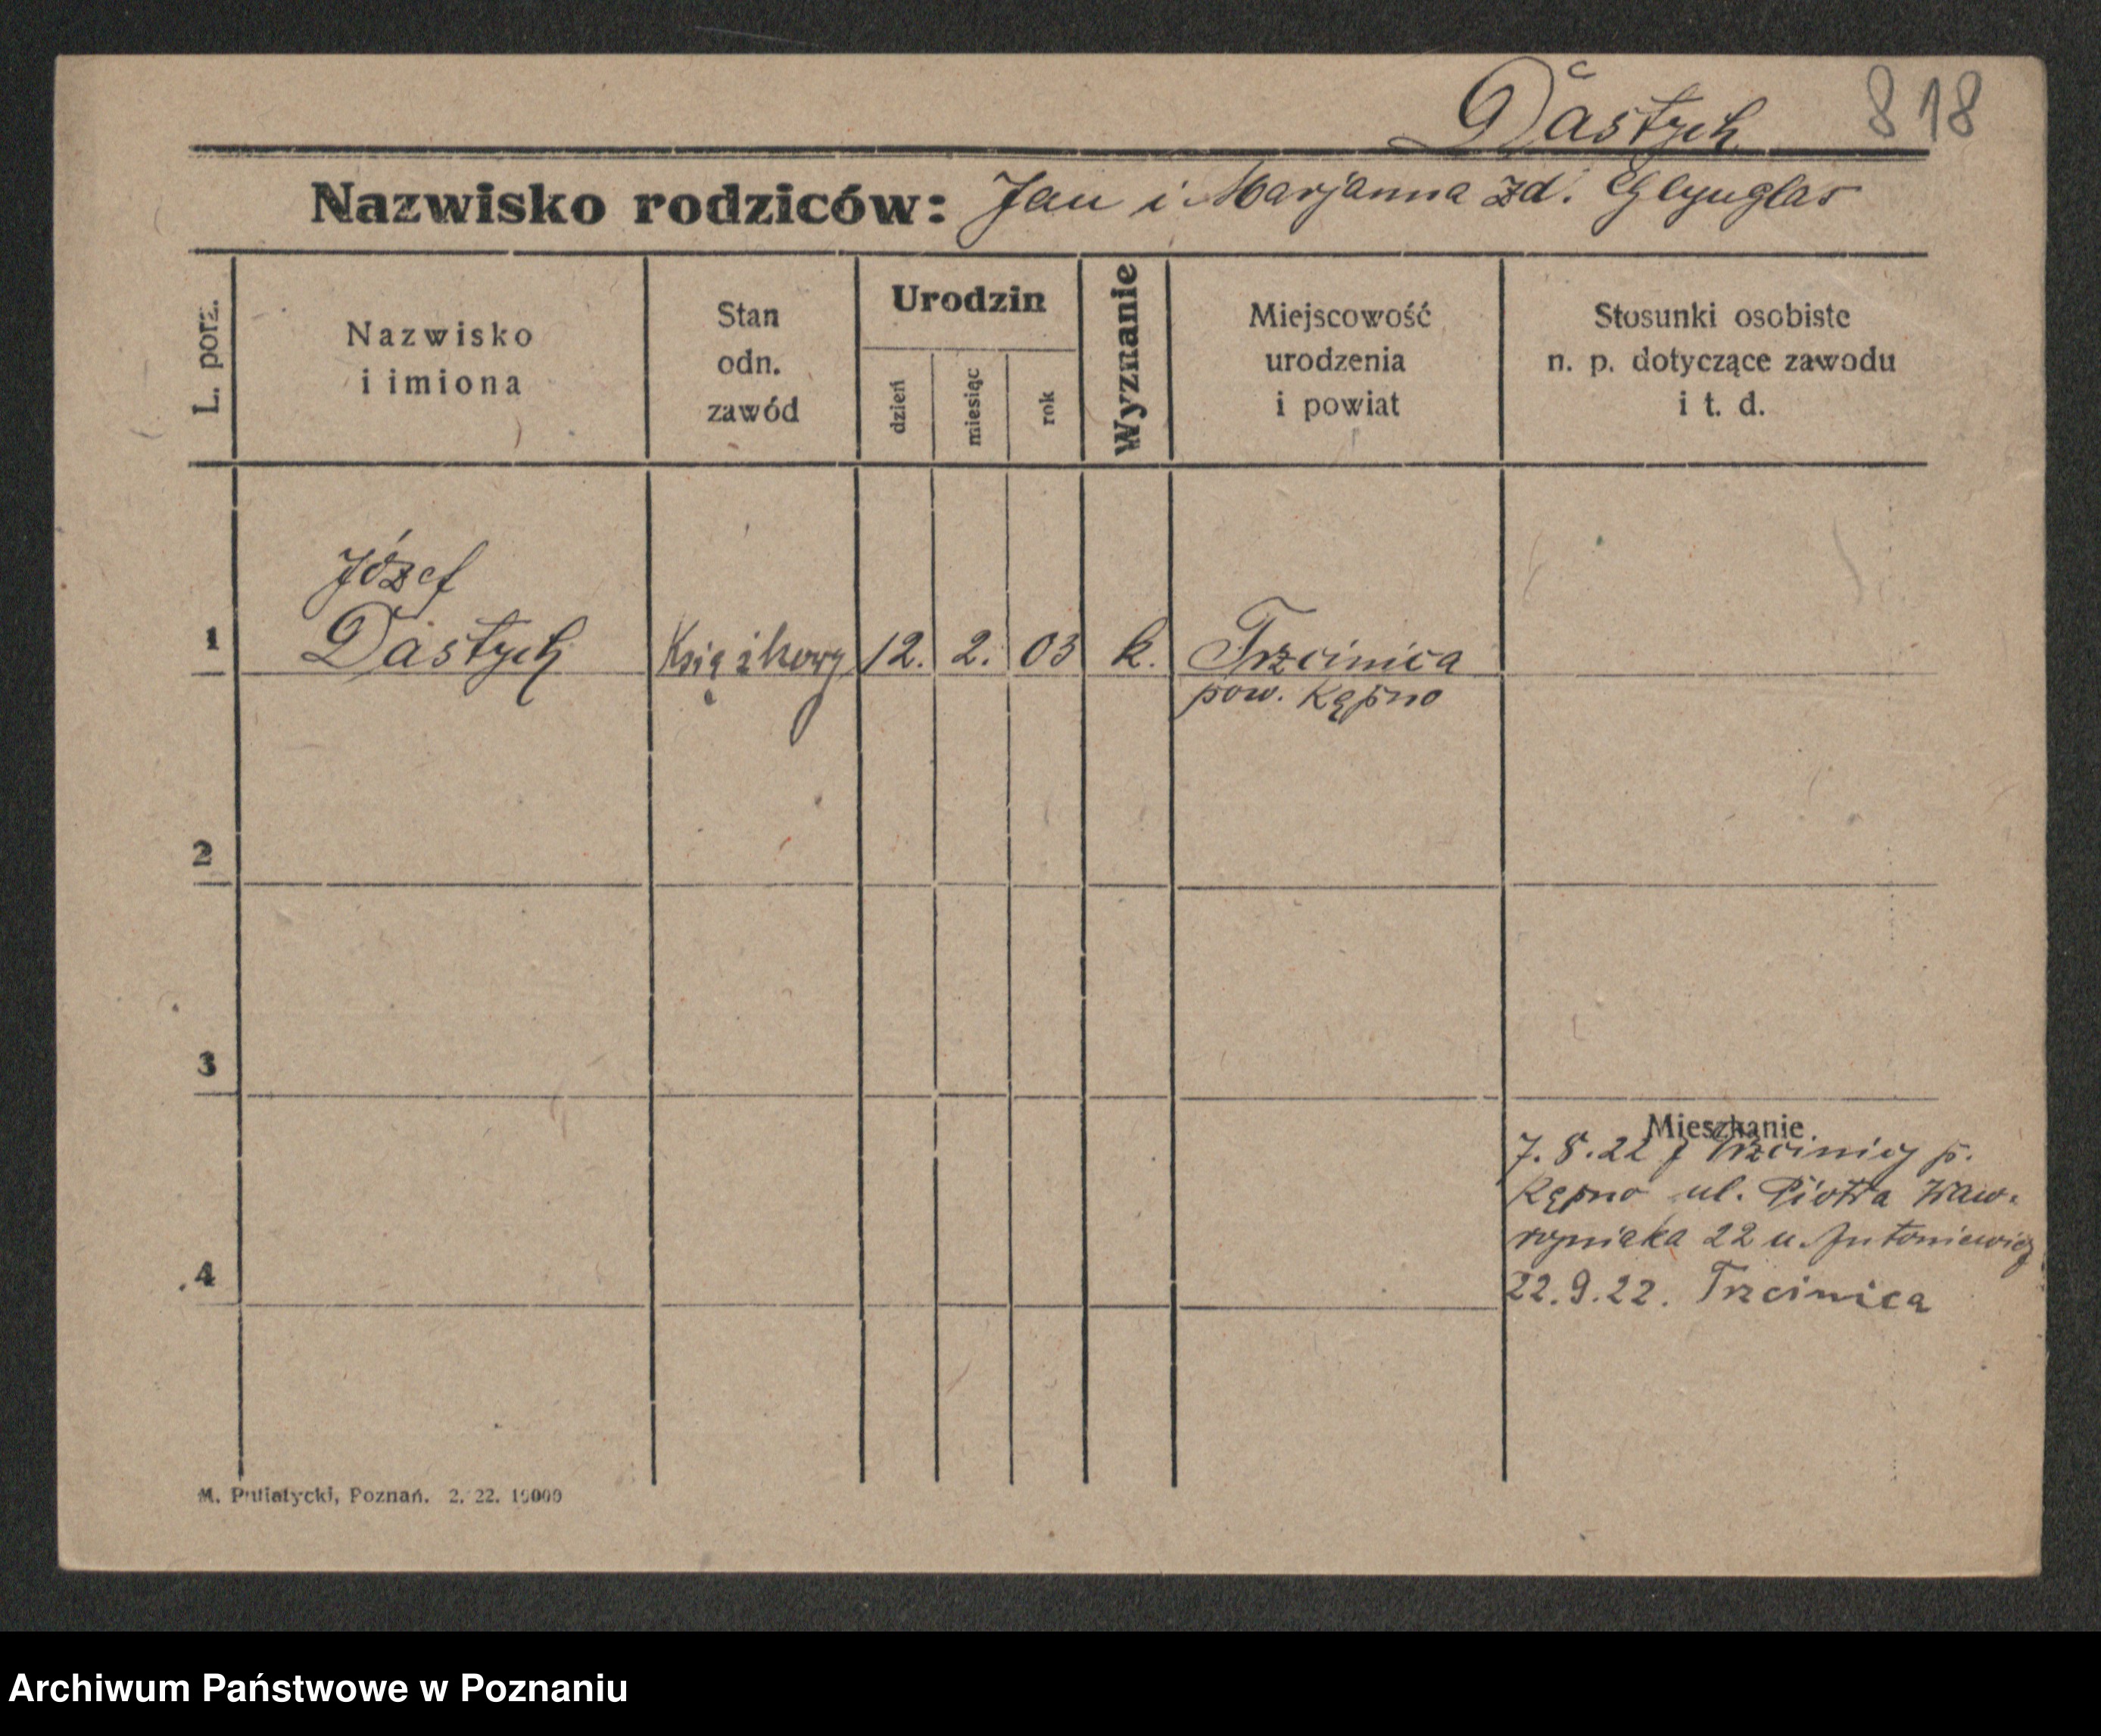 Dastych 818
Nazwisko rodziców: Jan i Marjanna zd.
L. porz.
Nazwisko
i imiona
Stan
odn.
zawód
Urodzin
dzień
miesiąc
rok
Wyznanie
Miejscowość
urodzenia
i powiat
Stosunki osobiste
n. p. dotyczące zawodu
i t. d.
Józef
1 Dastych Książkowy 12. 2. 03 k. Trzcinica
pow. Kępno
2
3
Mieszkanie
7. 8. 22 z Trzcinicy p.
Kępno ul. Piotra Waw-
rzyniaka 22 u. Antoniewicz
4
22. 9. 22. Trzcinica
M. Putiatycki, Poznań. 2. 22. 10000
Archiwum Państwowe w Poznaniu